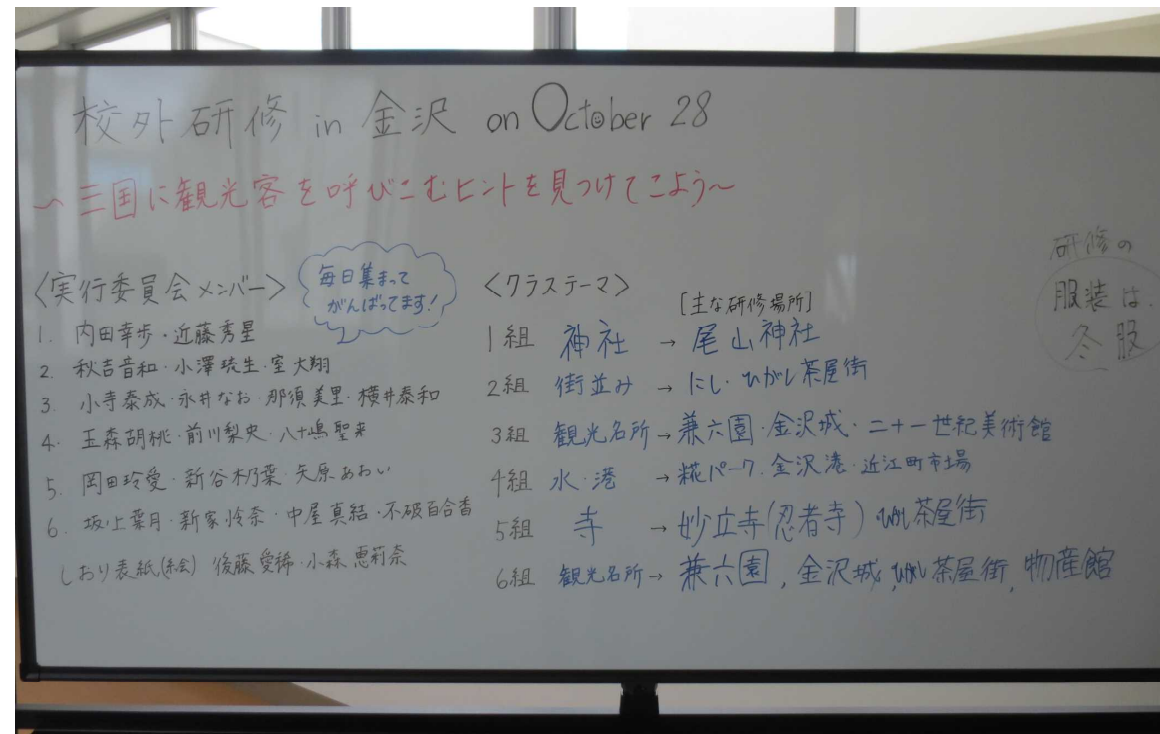 校外研修 in 金沢 on October 28
～三国に観光客を呼びこむヒントを見つけてこよう～
〈実行委員会メンバー〉
毎日集まって
がんばってます！
1. 内田幸歩・近藤秀星
2. 秋吉音和・小澤琉生・室大翔
3. 小寺泰成・永井なお・那須美里・横井泰和
4. 玉森胡桃・前川梨央・八十嶋聖来
5. 岡田玲愛・新谷木乃葉・矢原あおい
6. 坂上葉月・新家怜奈・中屋真結・不破百合香
しおり表紙(絵) 後藤愛稀・小森恵莉奈
〈クラステーマ〉
[主な研修場所]
1組 神社 → 尾山神社
2組 街並み → にし・ひがし茶屋街
3組 観光名所 → 兼六園・金沢城・二十一世紀美術館
4組 水・港 → 糀パーク・金沢港・近江町市場
5組 寺 → 妙立寺(忍者寺) ひがし茶屋街
6組 観光名所 → 兼六園, 金沢城, ひがし茶屋街, 物産館
研修の
服装は、
冬服